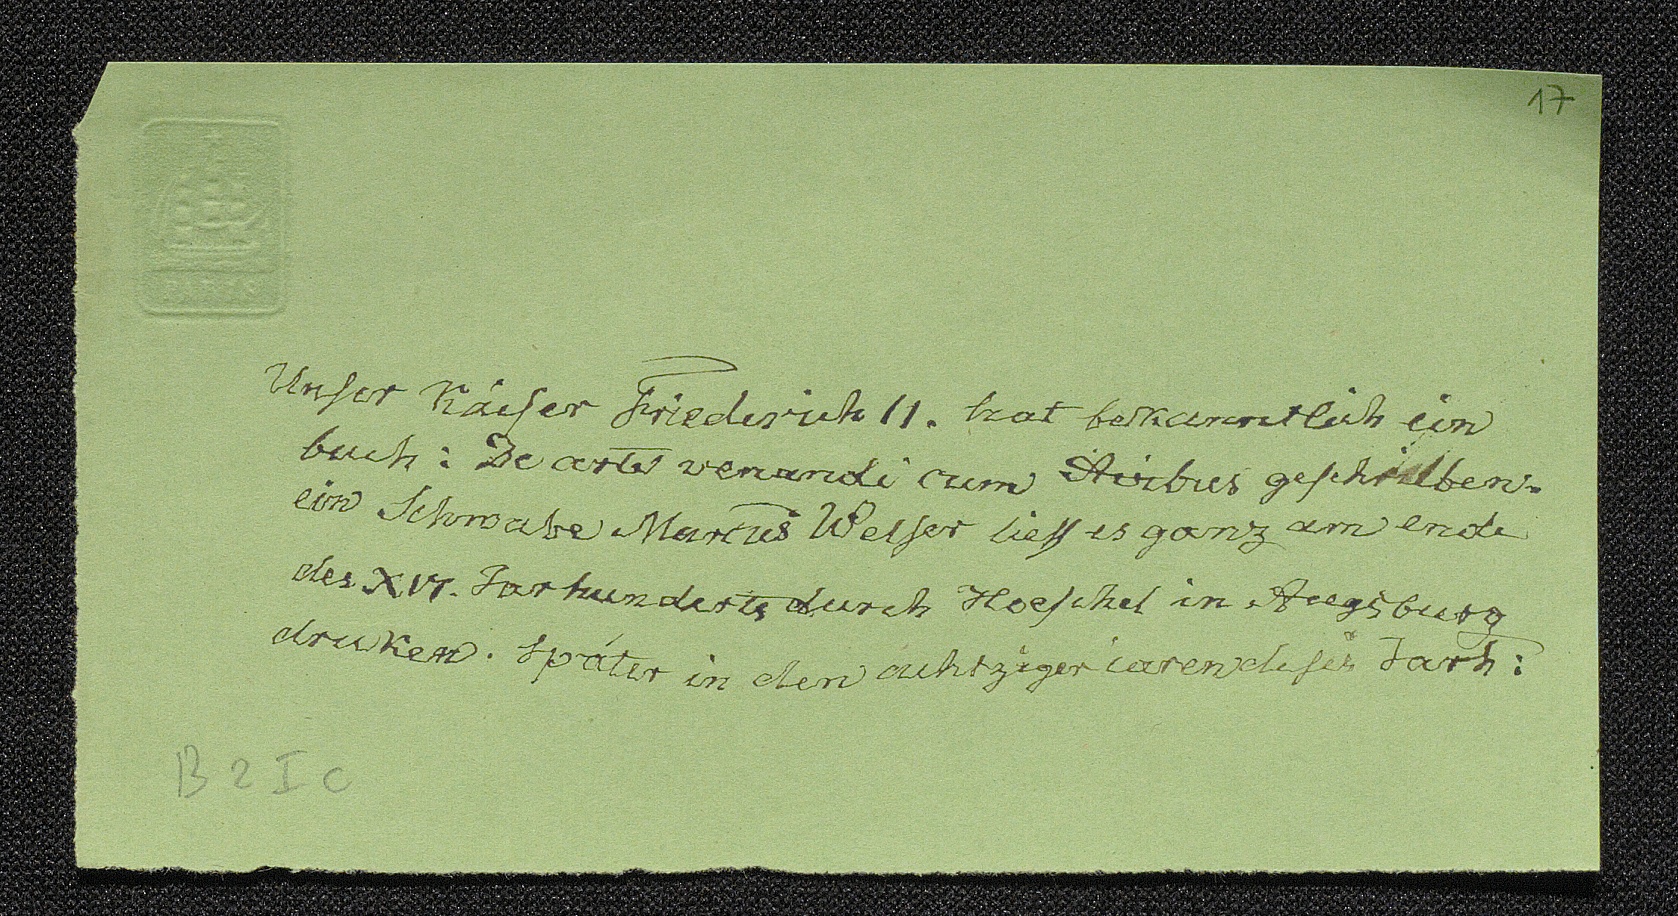 17
PARYS
Unser Kaiser Friederich II. hat bekanntlich ein
buch: De arte venandi cum Avibus geschrieben.
ein Schwabe Marcus Welser ließ es ganz am ende
des XVI. Jarhunderts durch Hoeschel in Augsburg
druken. später in den achtziger iaren dises Jarh:
B 2 I c